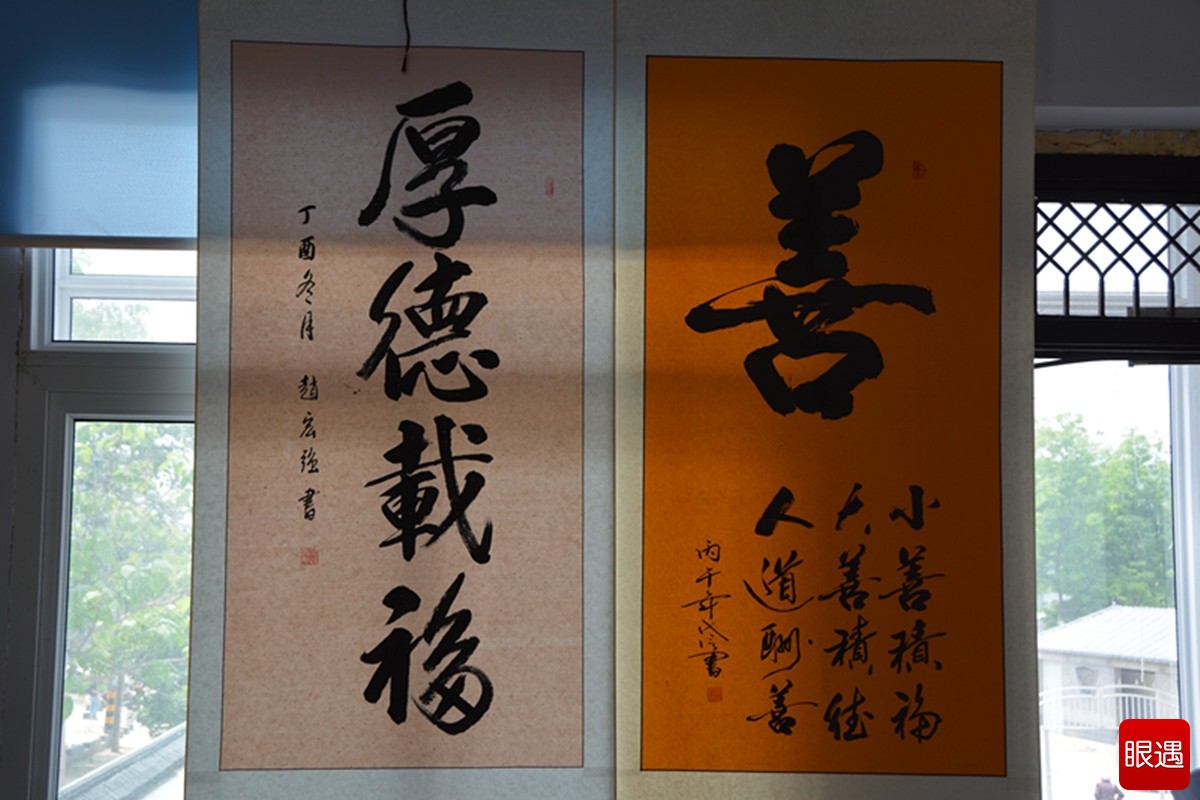 厚德載福
丁酉冬月 趙宏強書
善
小善積福
大善積德
人道酬善
丙午年
書
眼遇